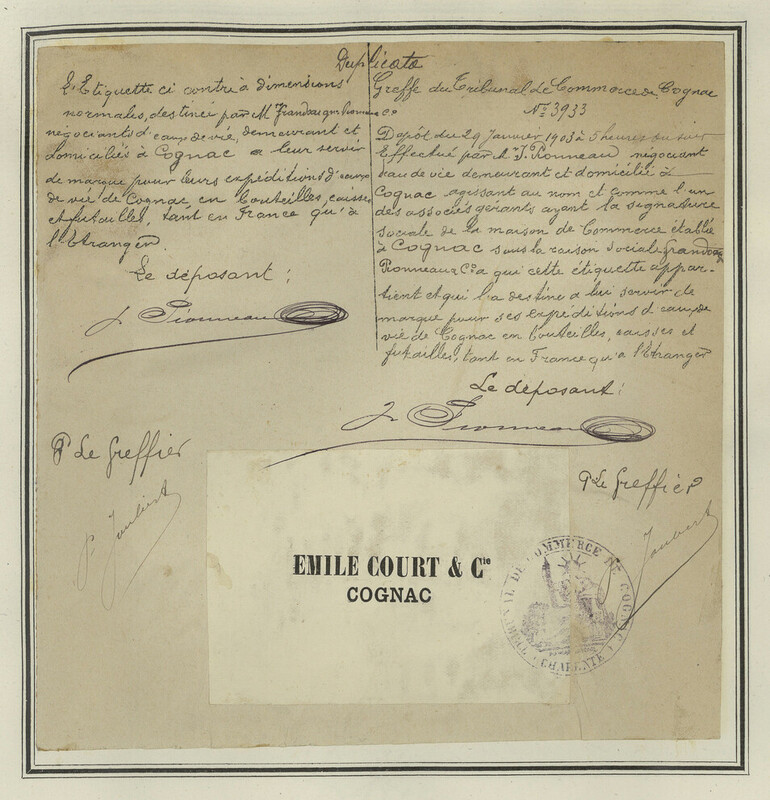 Duplicata
L'Etiquette ci contre à dimensions
normales, destinée par M
négociants d'eaux de vie, demeurant et
domiciliés à Cognac a leur servir
de marque pour leurs expéditions d'eaux
de vie de Cognac en bouteilles, caisses
et futailles, tant en France qu'à
l'Etranger
Le déposant :
J. Pionneau
P Le Greffier
P. Jaubert
Greffe du Tribunal de Commerce de Cognac
No 3933
Dépôt du 29 Janvier 1903 à 5 heures du soir
Effectué par Mr J. Pionneau négociant
eau de vie demeurant et domicilié à
Cognac agissant au nom et comme l'un
des associés gérants ayant la signature
sociale de la maison de Commerce établie
à Cognac sous la raison sociale
Pionneau & Cie a qui cette étiquette appar-
tient et qui l'a destine a lui servir de
marque pour ses expéditions d'eau de
vie de Cognac en bouteilles, caisses et
futailles, tant en France qu'a l'Etranger
Le déposant :
J Pionneau
P Le Greffier
Jaubert
EMILE COURT & Cie
COGNAC
TRIBUNAL DE COMMERCE DE COGNAC
CHARENTE